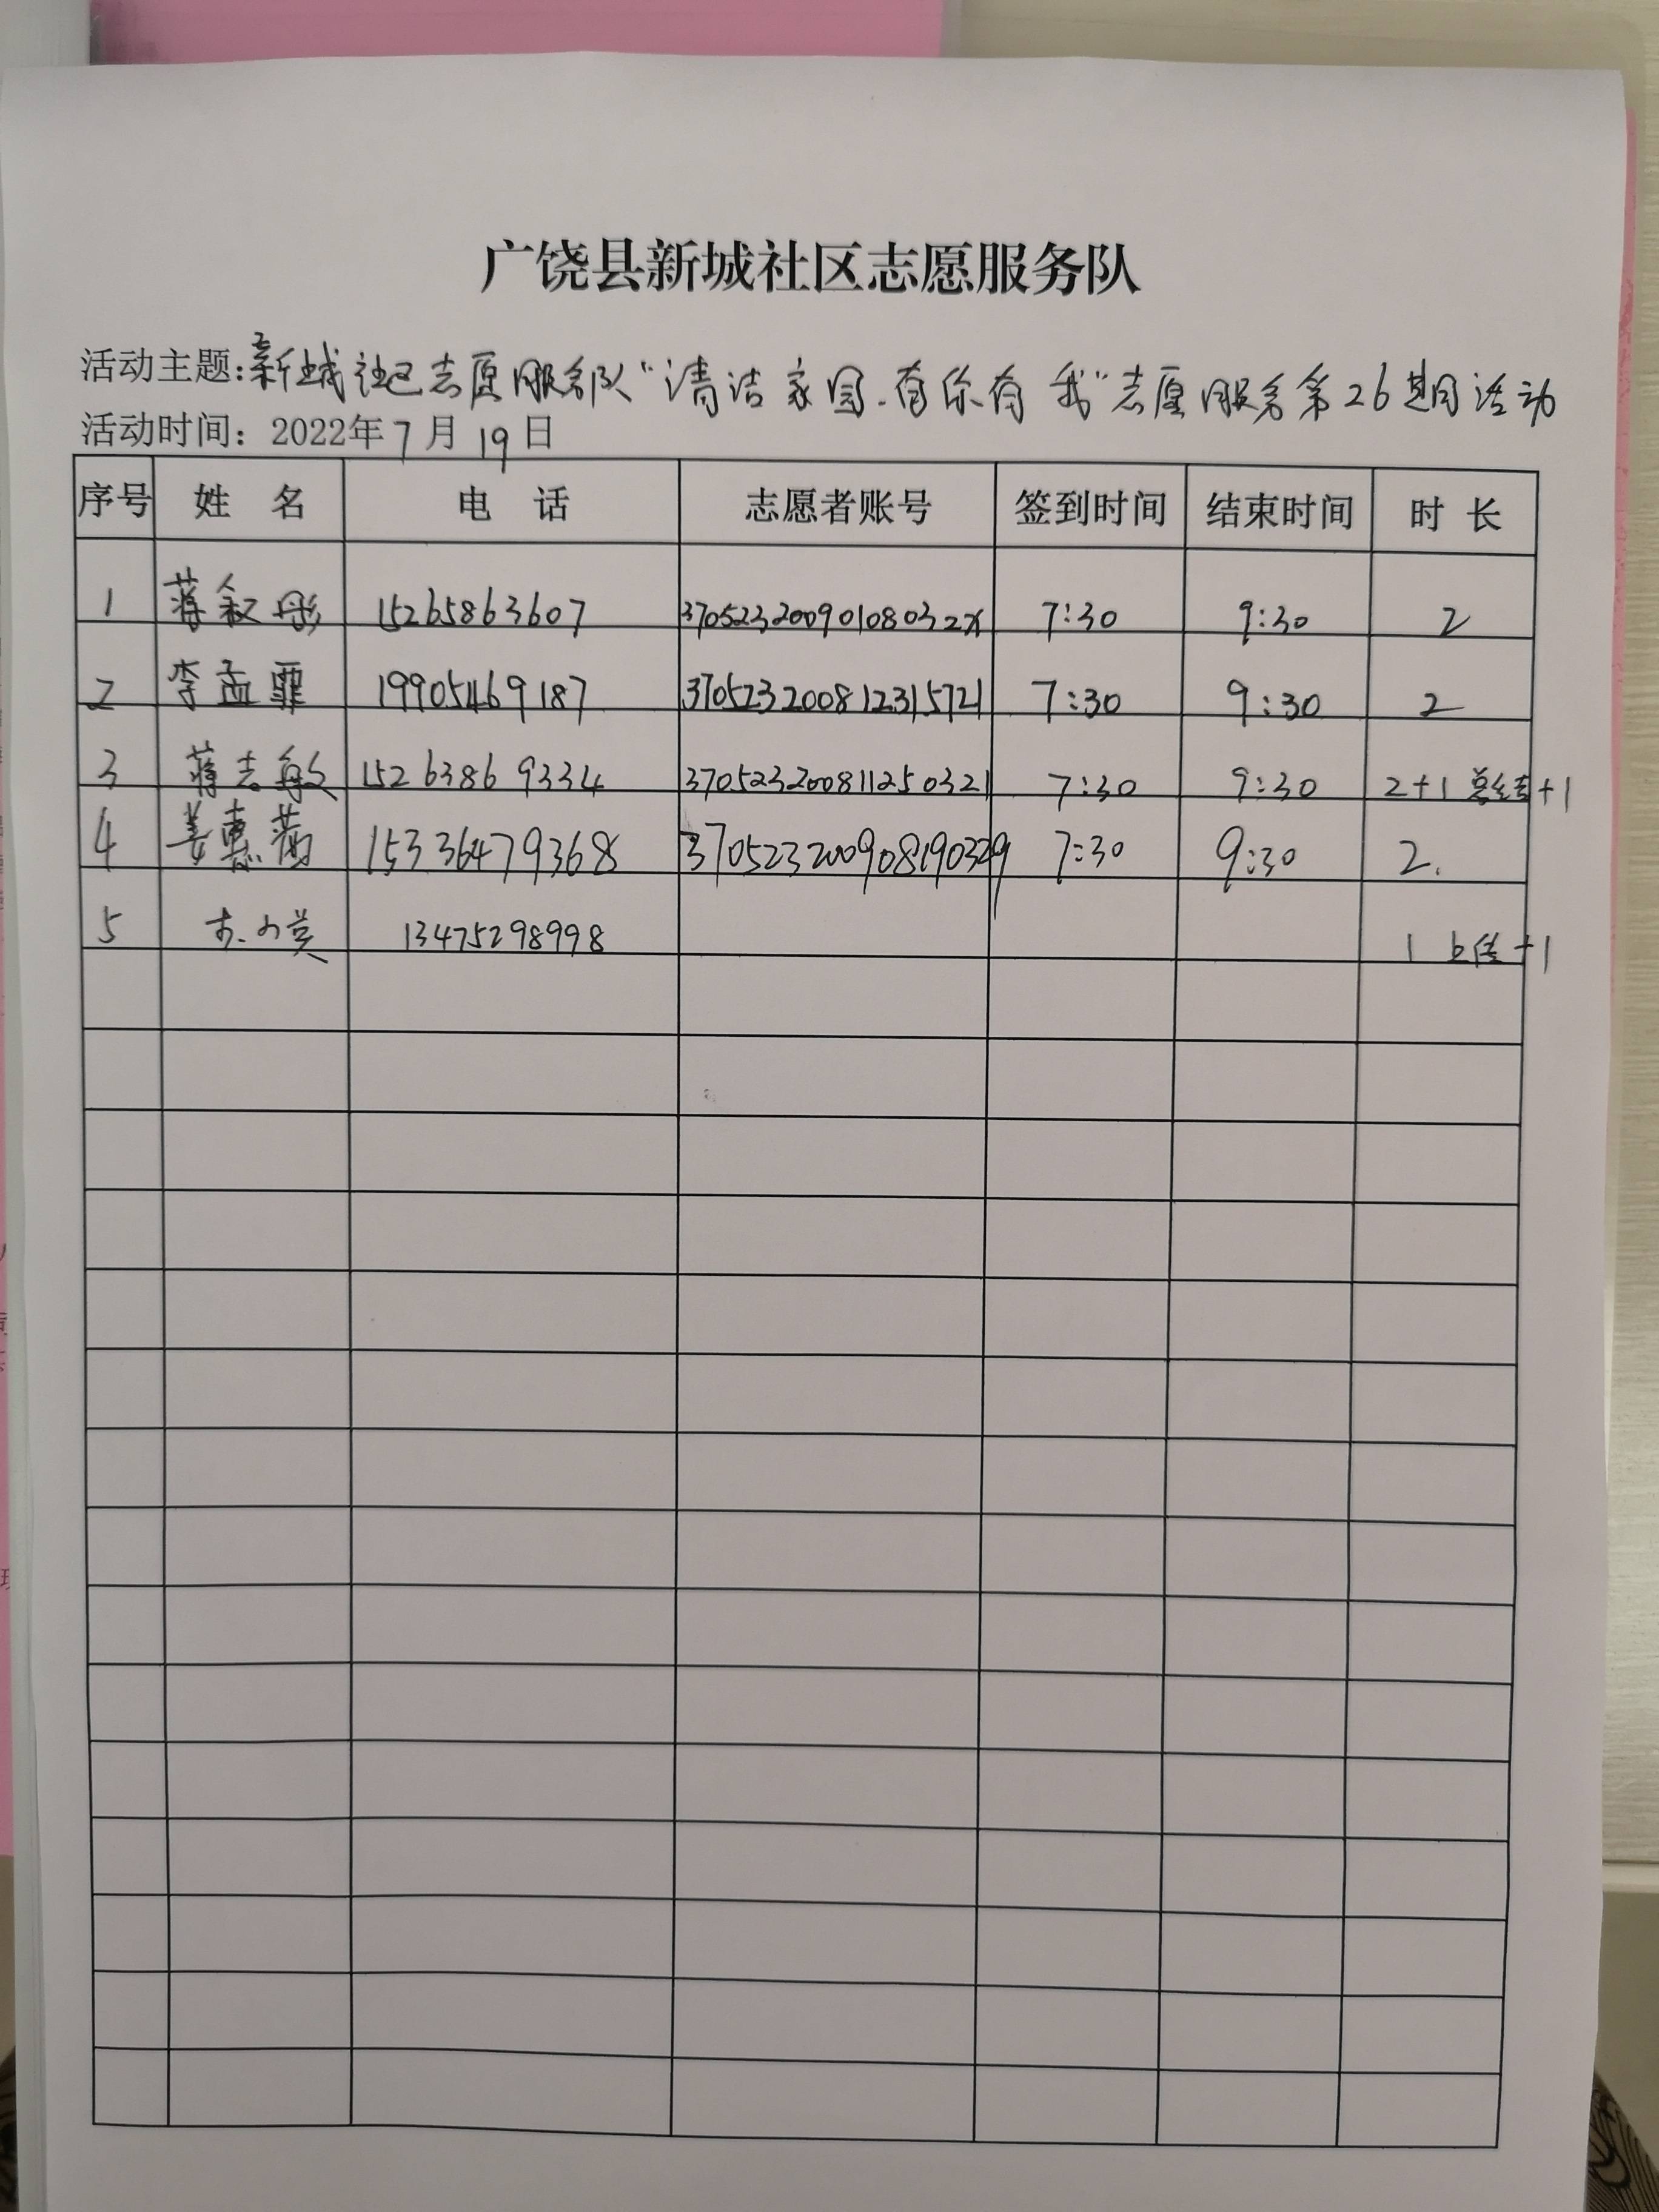 广饶县新城社区志愿服务队
活动主题:新城社区志愿服务队"清洁家园.有你有我"志愿服务第26期活动
活动时间：2022年7月19日
序号 姓名 电话 志愿者账号 签到时间 结束时间 时长
1 蒋叙彤 15265863607 37052320090108032X 7:30 9:30 2
2 李孟霏 19905469187 370523200812315721 7:30 9:30 2
3 蒋志敏 15263869334 370523200811250321 7:30 9:30 2+1 总结+1
4 姜惠 15336479368 370523200908190329 7:30 9:30 2.
5 13475298998 1 上传+1